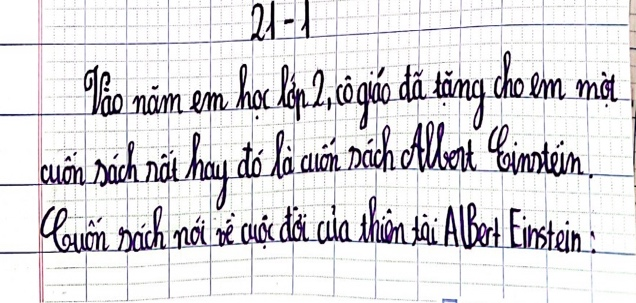 21-1
Vào năm em học lớp 2, cô giáo đã tặng cho em một
cuốn sách rất hay đó là cuốn sách Albert Einstein.
Cuốn sách nói về cuộc đời của thiên tài Albert Einstein: